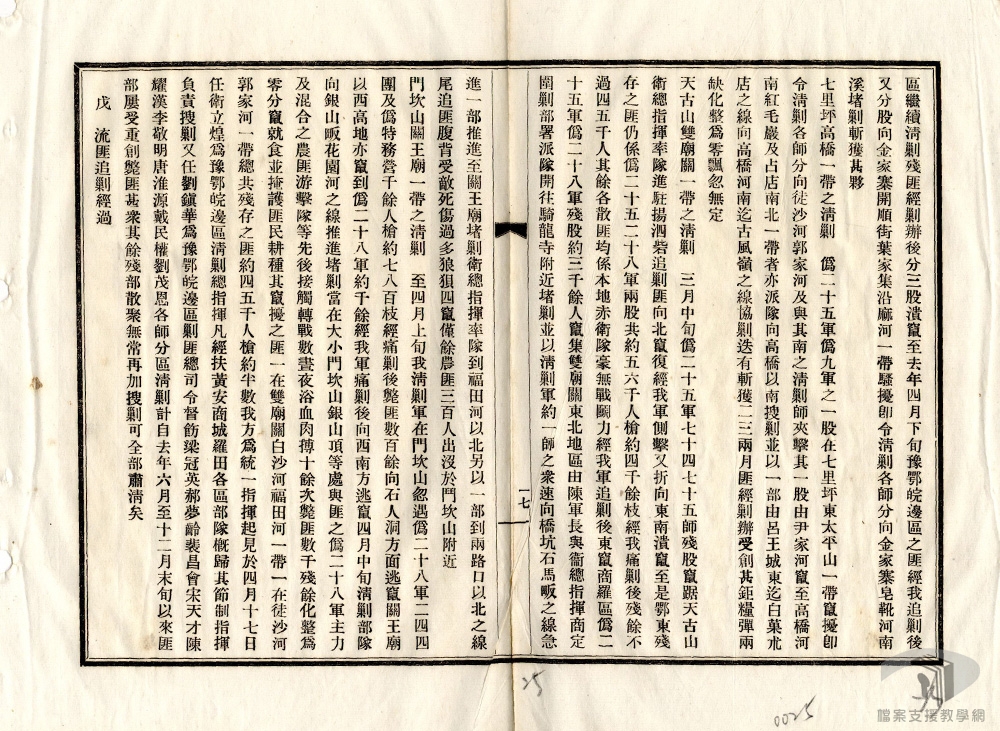 區繼續清剿殘匪經剿辦後分三股潰竄至去年四月下旬豫鄂皖邊區之匪經我追剿後
又分股向金家寨開順街葉家集沿麻河一帶騷擾卽令清剿各師分向金家寨皂靴河南
溪堵剿斬獲甚夥
七里坪高橋一帶之清剿 僞二十五軍僞九軍之一股在七里坪東太平山一帶竄擾卽
令清剿各師分向徒沙河郭家河及與其南之清剿師夾擊其一股由尹家河竄至高橋河
南紅毛巖及占店南北一帶者亦派隊向高橋以南搜剿並以一部由呂王城東迄白菓朮
店之線向高橋河南迄古風嶺之線協剿迭有斬獲二三兩月匪經剿辦受創甚鉅糧彈兩
缺化整爲零飄忽無定
天古山雙廟關一帶之清剿 三月中旬僞二十五軍七十四七十五師殘股竄踞天古山
衛總指揮率隊進駐揚泗砦追剿匪向北竄復經我軍側擊又折向東南潰竄至是鄂東殘
存之匪仍係僞二十五二十八軍兩股共約五六千人槍約四千餘枝經我痛剿後殘餘不
過四五千人其餘各散匪均係本地赤衛隊豪無戰鬭力經我軍追剿後東竄商羅區僞二
十五軍僞二十八軍殘股約三千餘人竄集雙廟關東北地區由陳軍長與衞總指揮商定
圍剿部署派隊開往騎龍寺附近堵剿並以清剿軍約一師之衆速向橋坑石馬畈之線急
一七
進一部推進至關王廟堵剿衛總指揮率隊到福田河以北另以一部到兩路口以北之線
尾追匪腹背受敵死傷過多狼狽四竄僅餘農匪三百人出沒於鬥坎山附近
門坎山關王廟一帶之清剿 至四月上旬我清剿軍在門坎山忽遇僞二十八軍二四四
團及僞特務營千餘人槍約七八百枝經痛剿後斃匪數百餘向石人洞方面逃竄關王廟
以西高地亦竄到僞二十八軍約千餘經我軍痛剿後向西南方逃竄四月中旬清剿部隊
向銀山畈花園河之線推進堵剿當在大小門坎山銀山項等處與匪之僞二十八軍主力
及混合之農匪游擊隊等先後接觸轉戰數晝夜浴血肉搏十餘次斃匪數千殘餘化整爲
零分竄就食並掩護匪民耕種其竄擾之匪一在雙廟關白沙河福田河一帶一在徒沙河
郭家河一帶總共殘存之匪約四五千人槍約半數我方爲統一指揮起見於四月十七日
任衛立煌爲豫鄂皖邊區清剿總指揮凡經扶黃安商城羅田各區部隊概歸其節制指揮
負責搜剿又任劉鎮華爲豫鄂皖邊區剿匪總司令督飭梁冠英郝夢齡裴昌會宋天才陳
耀漢李敬明唐淮源戴民權劉茂恩各師分區清剿計自去年六月至十二月末旬以來匪
部屢受重創斃匪甚衆其餘殘部散聚無常再加搜剿可全部肅清矣
戊 流匪追剿經過
25
0025
檔案支援教學網